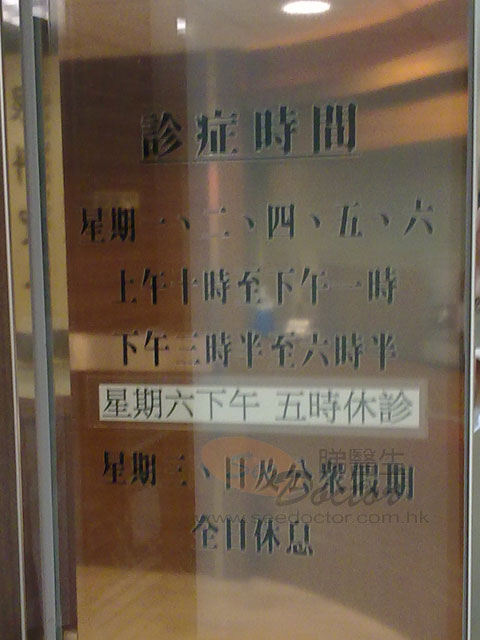 診症時間
星期一、二、四、五、六
上午十時至下午一時
下午三時半至六時半
星期六下午 五時休診
星期三、日及公眾假期
睇醫生
Doctor
www.seedoctor.com.hk
全日休息